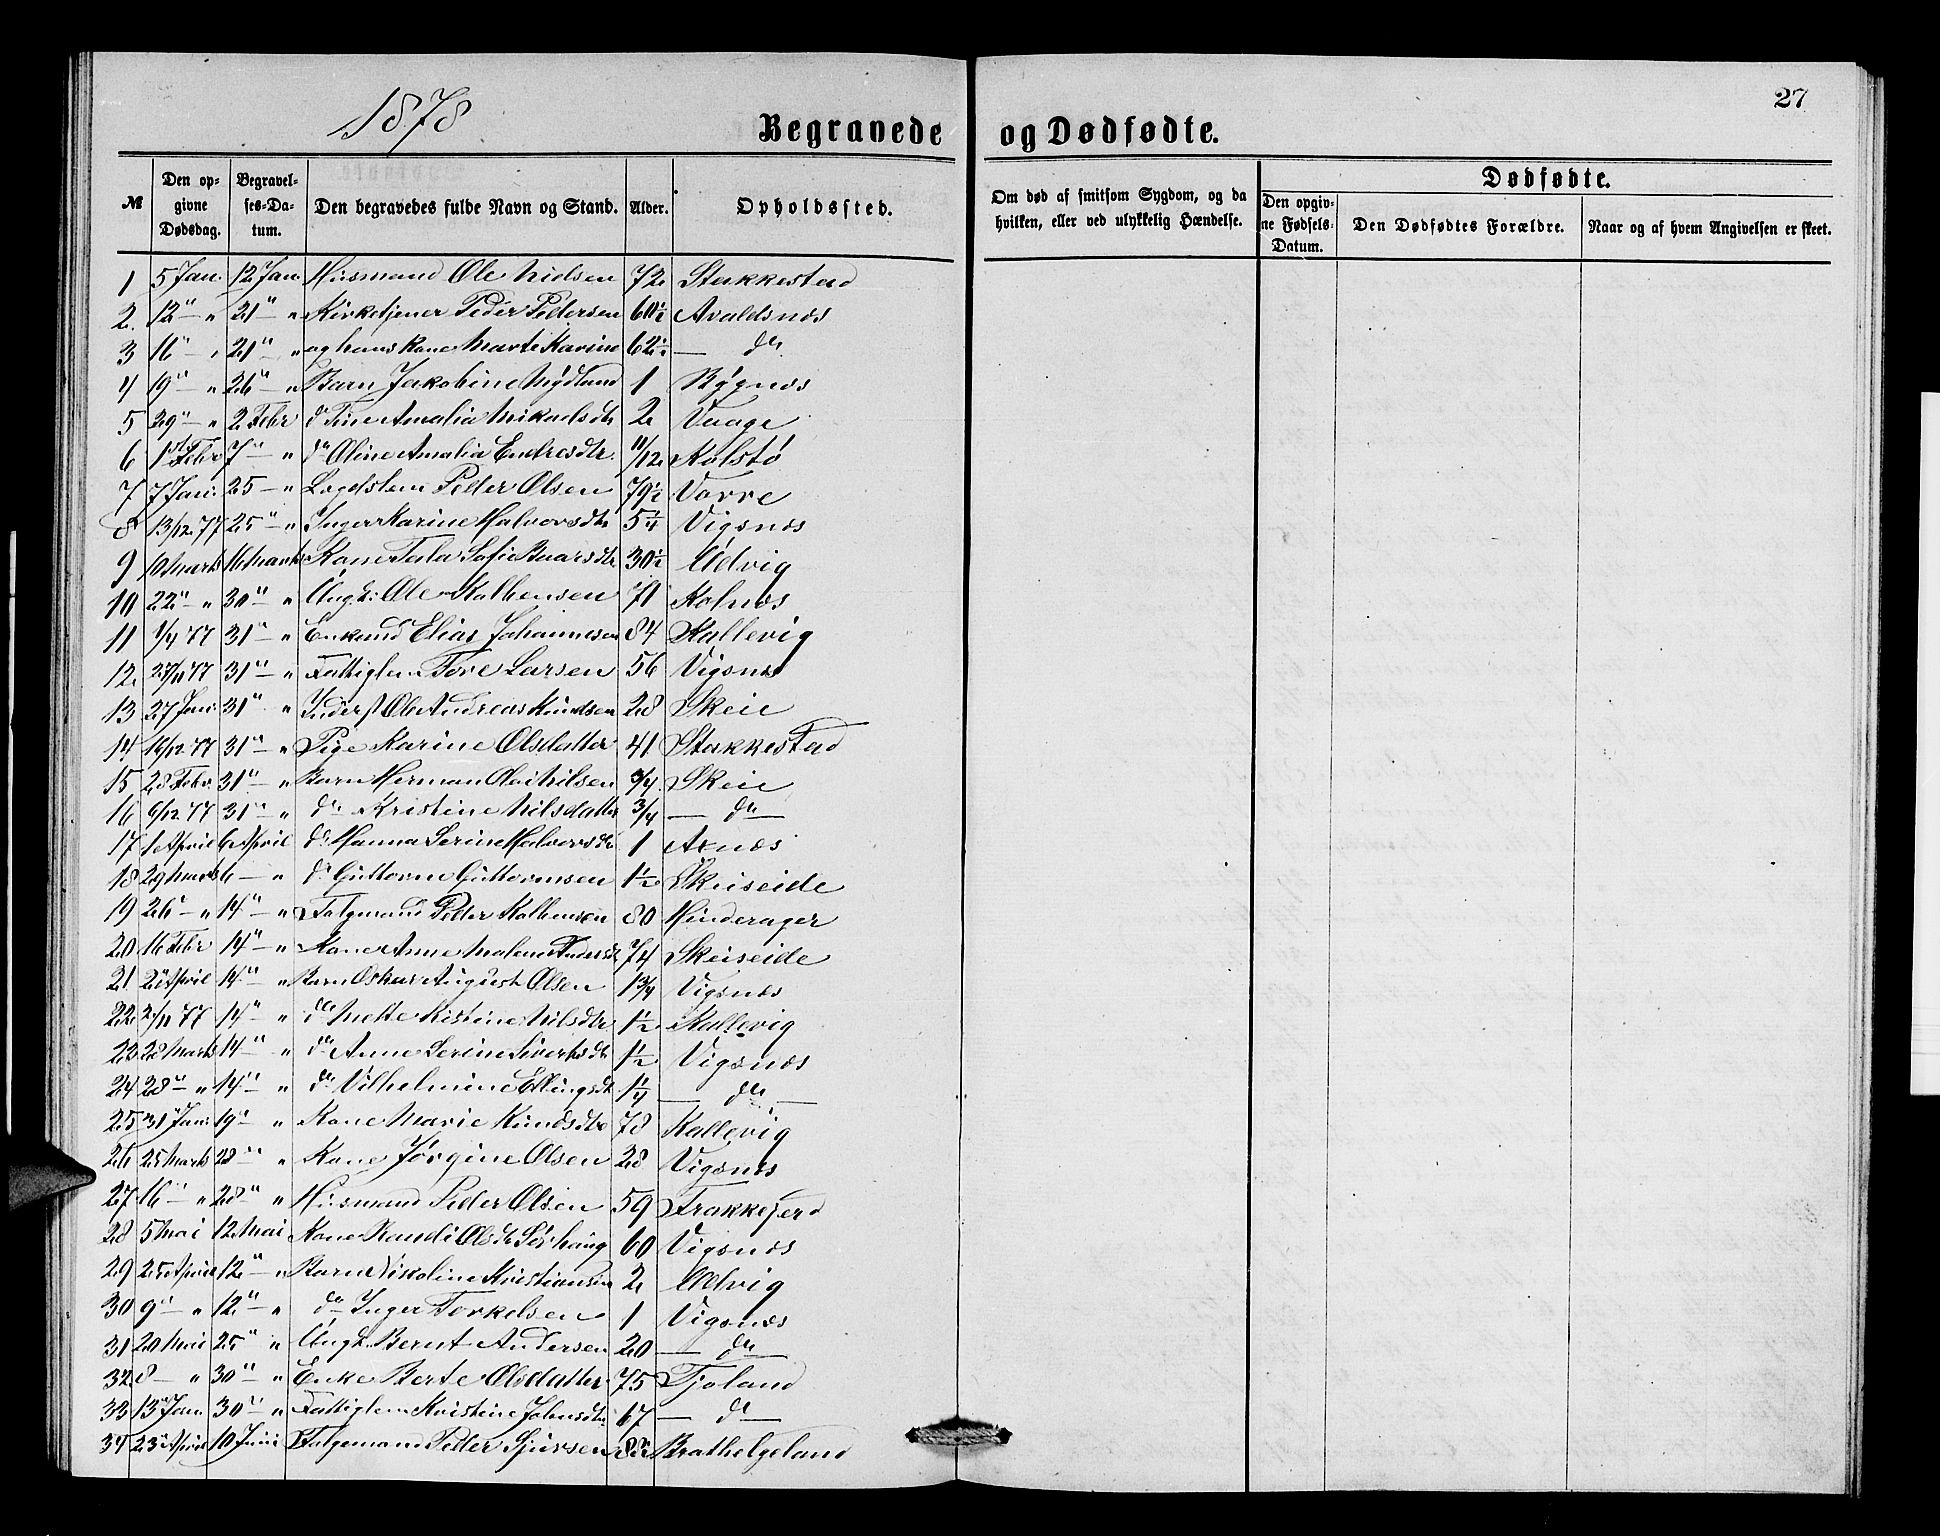 1878
27
Begravede og Dødfødte.
№ | Den opgivne Dødsdag. | Begravelses-Datum. | Den begravedes fulde Navn og Stand. | Alder. | Opholdssted. | Om død af smitsom Sygdom, og da hvilken, eller ved ulykkelig Hændelse. | Dødfødte. | Den opgivne Fødsels-Datum. | Den Dødfødtes Forældre. | Naar og af hvem Angivelsen er skeet.
1 5 Jan. 12 Jan Husmand Ole Nielsen 72 Stakkestad
2. 12" — " 21" — " Kirketjener Peder Pedersen 60½ Avaldsnæs
3 16" — " 21" — " og hans Kone Marte Karine 62½ — do
4 19" " 26" — " Barn Jakobine Mydland 1 Rygnæs
5 29" — " 2 Febr do Tine Amalia Mikaelsdtr 2 Vaage
6 1ste Febr 7" — " do Oline Amalia Endresdtr. 11/12 Kolstø
7 7 Jan. 25 — " Lægdslem Peder Olsen 79½ Vorre
8 13/12 77 25" — " Inger Karine Halvorsdtr 5¼ Vigsnæs
9 10 Marts 16 Marts Kone Tala Sofie Baarsdtr 30½ Udvig
10 22" — " 30" — " Ungk: Ole Kolbensen 71 Kolnæs
11 1/4 77 31" — " Enkemd Elias Johannesen 84 Kallevig
12. 27/11 77 31" — " Fattiglem Tore Larsen 56 Vigsnæs
13 27 Jan. 31" " Inderst Ole Andreas Knudsen 28 Skeie
14 12/12 77 31" — " Pige Karine Olsdatter 41 Stakkestad
15 28 Febr. 31" — " Barn Herman Olai Nilsen ¾ Skeie
16 6/12 77 31" — " do Kristine Nilsdatter ¾ — do —
17 1 April 6 April do Hanna Serine Halvorsdtr 1 Axnæs
18 29 Marts 6 — " do Guttorm Guttormsen 1½ Skeiseide
19 26" — " 14" — " Folgemand Peder Kolbensen 80 Hinderager
20 16 Febr 14" — " Kone Anne Malene Andersdtr 74 Skeiseide
21 2 April 14" — " Barn Oskar August Olsen 1¾ Vigsnæs
22 2/11 77 14" — " do Mette Kistine Nilsdtr 1½ Kallevig
23 28 Marts 14" — " do Anne Serine Sivertsdtr 1½ Vigsnæs
24 28" — " 14" — " do Vilhelmine Ellingsdtr 1¼ — do —
25 31 Jan. 19" " Kone Marie Knudsdtr 78 Kallevig
26 25 Marts 28" — " Kone Jørgine Olsen 28 Vigsnæs
27 16" — " 28" — " Husmand Peder Olsen 59 Frakkagjerd
28 5 Mai 12 Mai Kone Randi Olsdtr Sørhaug 60 Vigsnæs
29 25 April 12" — " Barn Nikoline Kristiansen 2 Udvig
30 9" — " 12" — " do Inger Torkelsen 1 Vigsnæs
31 20 Mai 25" " Ungk. Bernt Andersen 20 — do —
32. 8 — " 30" — " Enke Berte Olsdatter 75 Fjoland
33 13 Jan. 30" — " Fattiglem Kristine Johnsdtr. 67 — do —
34 23 April 10 Juni Folgemand Peder Sjursen 82 Brathelgeland